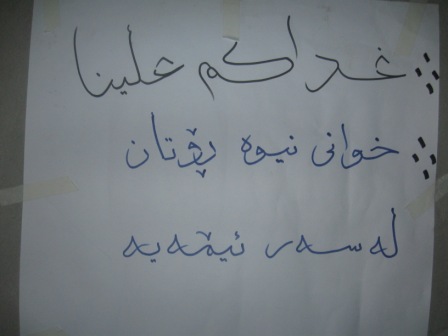 غداكم علينا
خوانی نیوه ڕۆتان
لەسەر ئێمەیە